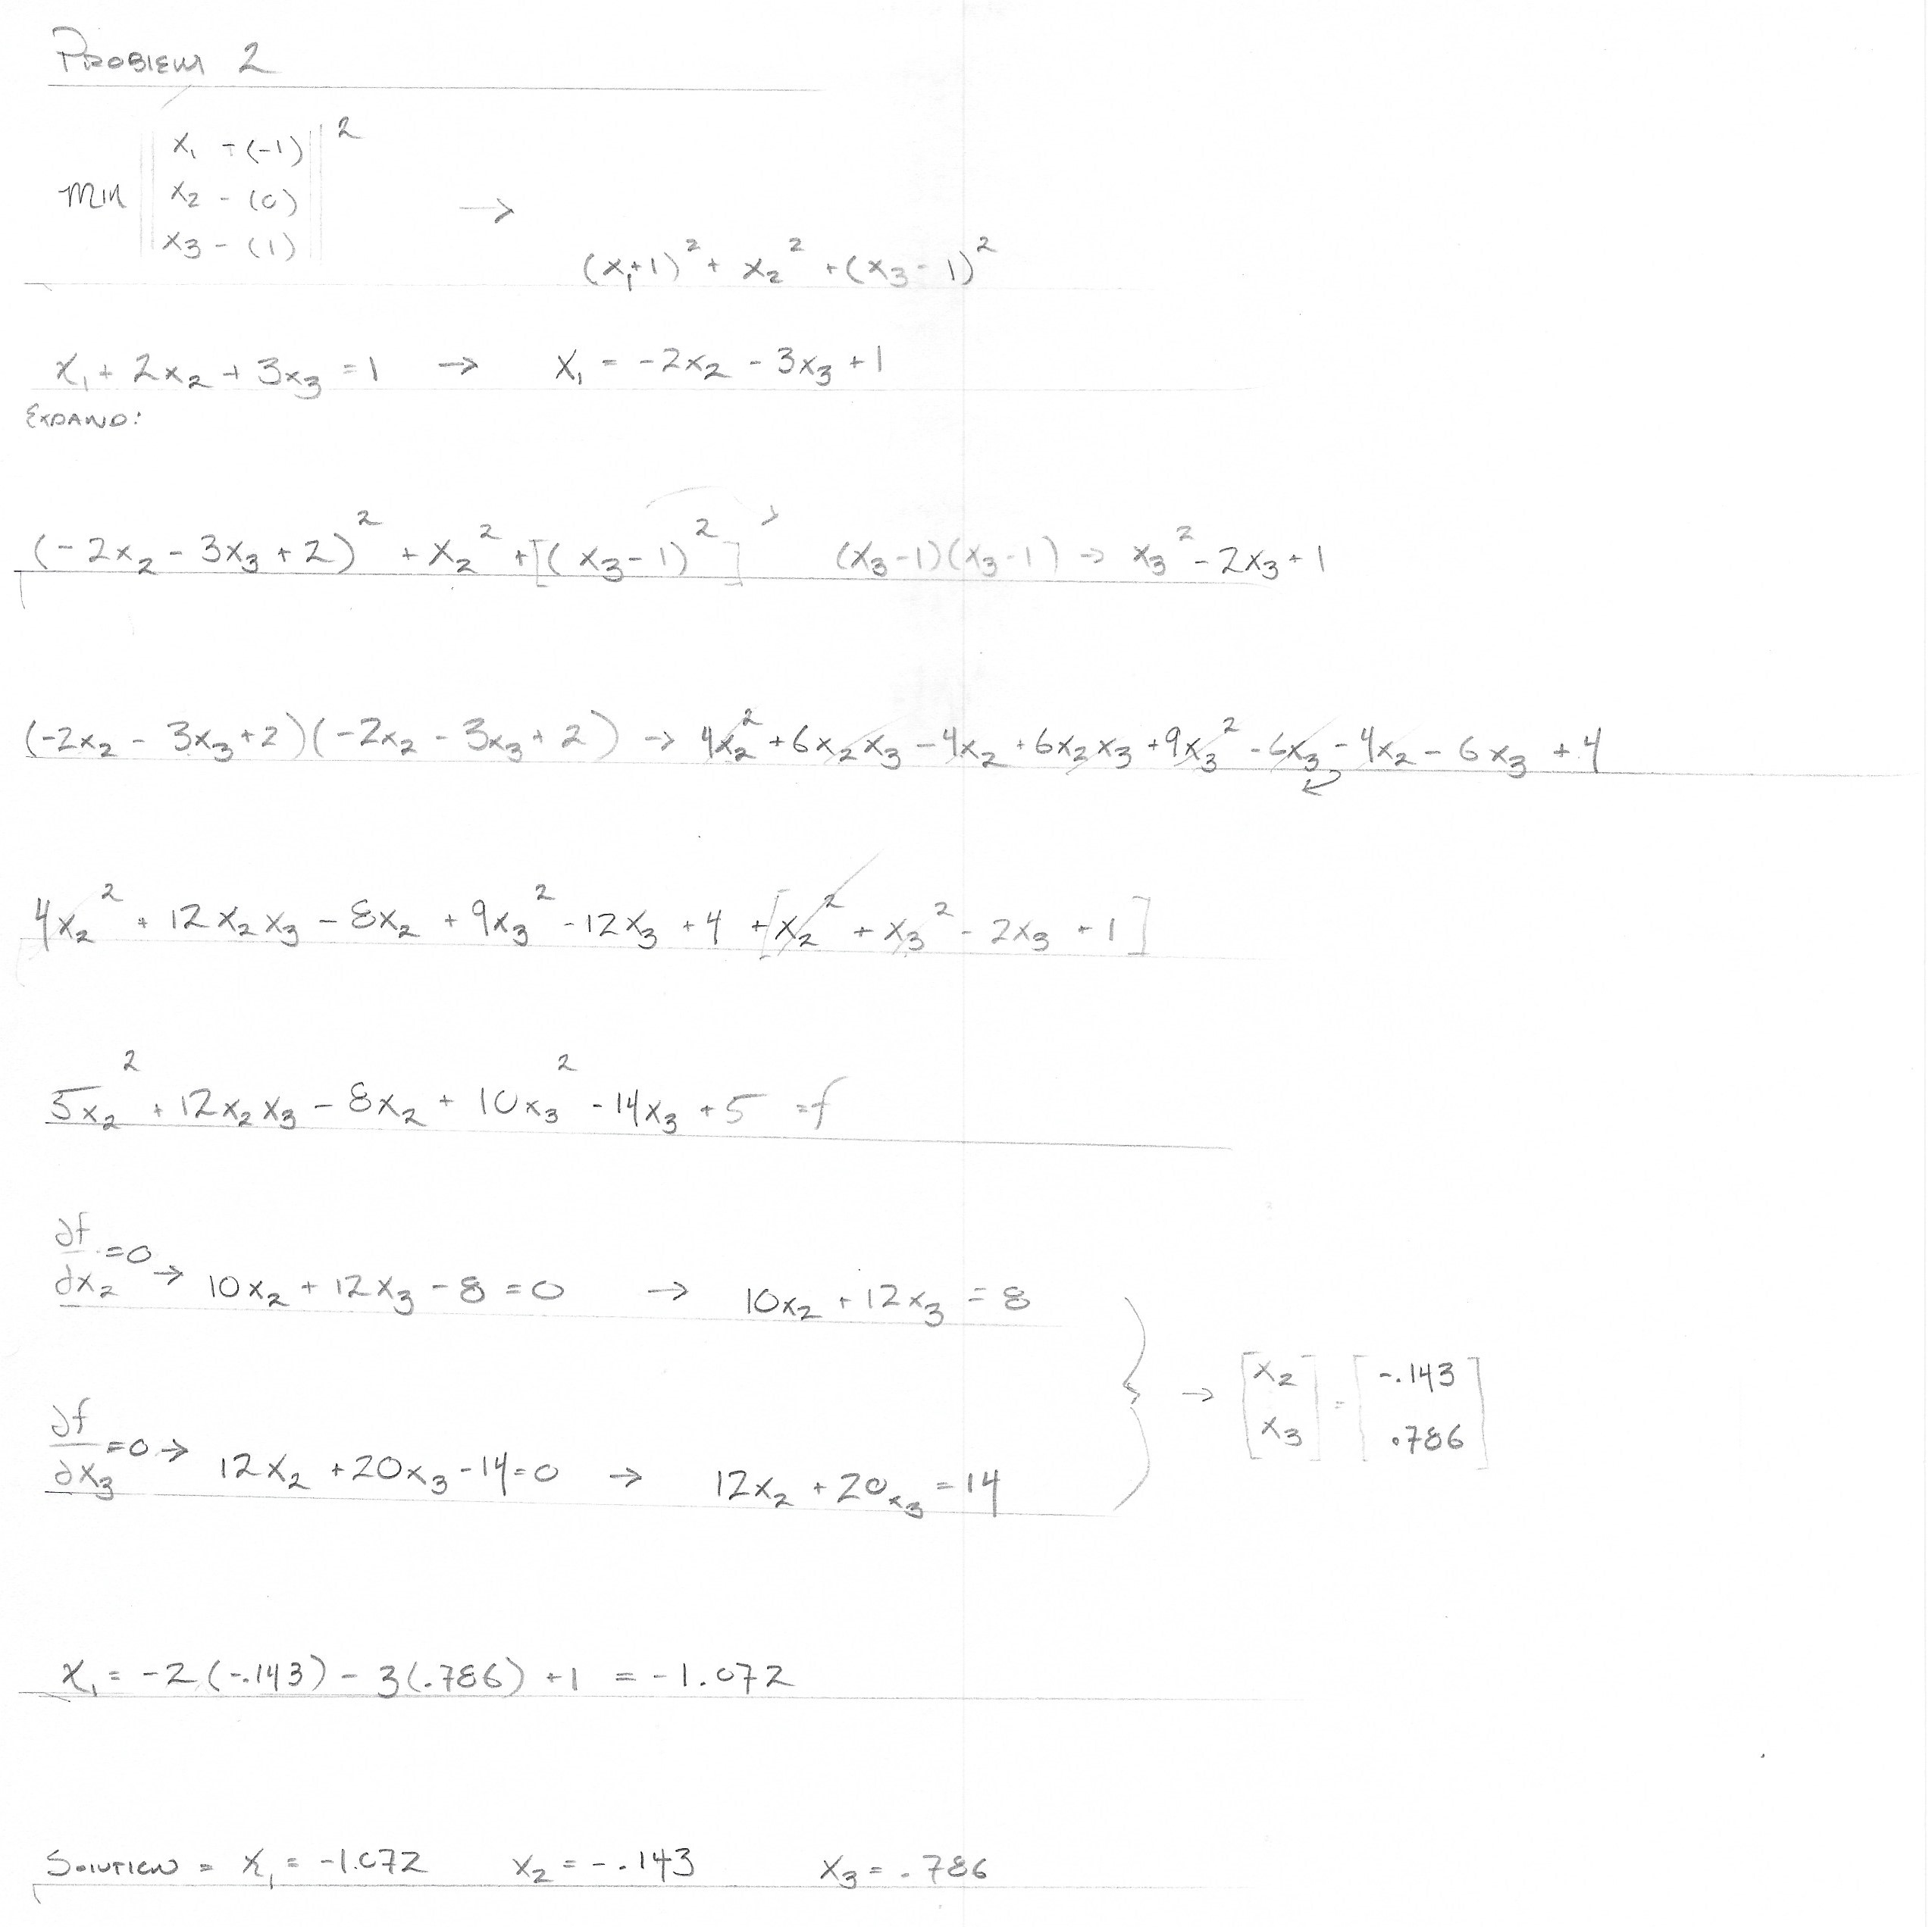 PROBLEM 2
MIN ‖ x₁ - (-1) ‖²
x₂ - (0)
x₃ - (1)
→ (x₁+1)² + x₂² + (x₃ - 1)²
x₁ + 2x₂ + 3x₃ = 1 → x₁ = -2x₂ - 3x₃ + 1
EXPAND:
(-2x₂ - 3x₃ + 2)² + x₂² + [(x₃ - 1)²] (x₃-1)(x₃-1) → x₃² - 2x₃ + 1
(-2x₂ - 3x₃ + 2)(-2x₂ - 3x₃ + 2) → 4x₂² + 6x₂x₃ - 4x₂ + 6x₂x₃ + 9x₃² - 6x₃ - 4x₂ - 6x₃ + 4
4x₂² + 12x₂x₃ - 8x₂ + 9x₃² - 12x₃ + 4 + [x₂² + x₃² - 2x₃ + 1]
5x₂² + 12x₂x₃ - 8x₂ + 10x₃² - 14x₃ + 5 = f
∂f/∂x₂ = 0 → 10x₂ + 12x₃ - 8 = 0 → 10x₂ + 12x₃ = 8
∂f/∂x₃ = 0 → 12x₂ + 20x₃ - 14 = 0 → 12x₂ + 20x₃ = 14
} → [x₂ x₃] = [-.143 .786]
x₁ = -2(-.143) - 3(.786) + 1 = -1.072
SOLUTION = x₁ = -1.072 x₂ = -.143 x₃ = .786